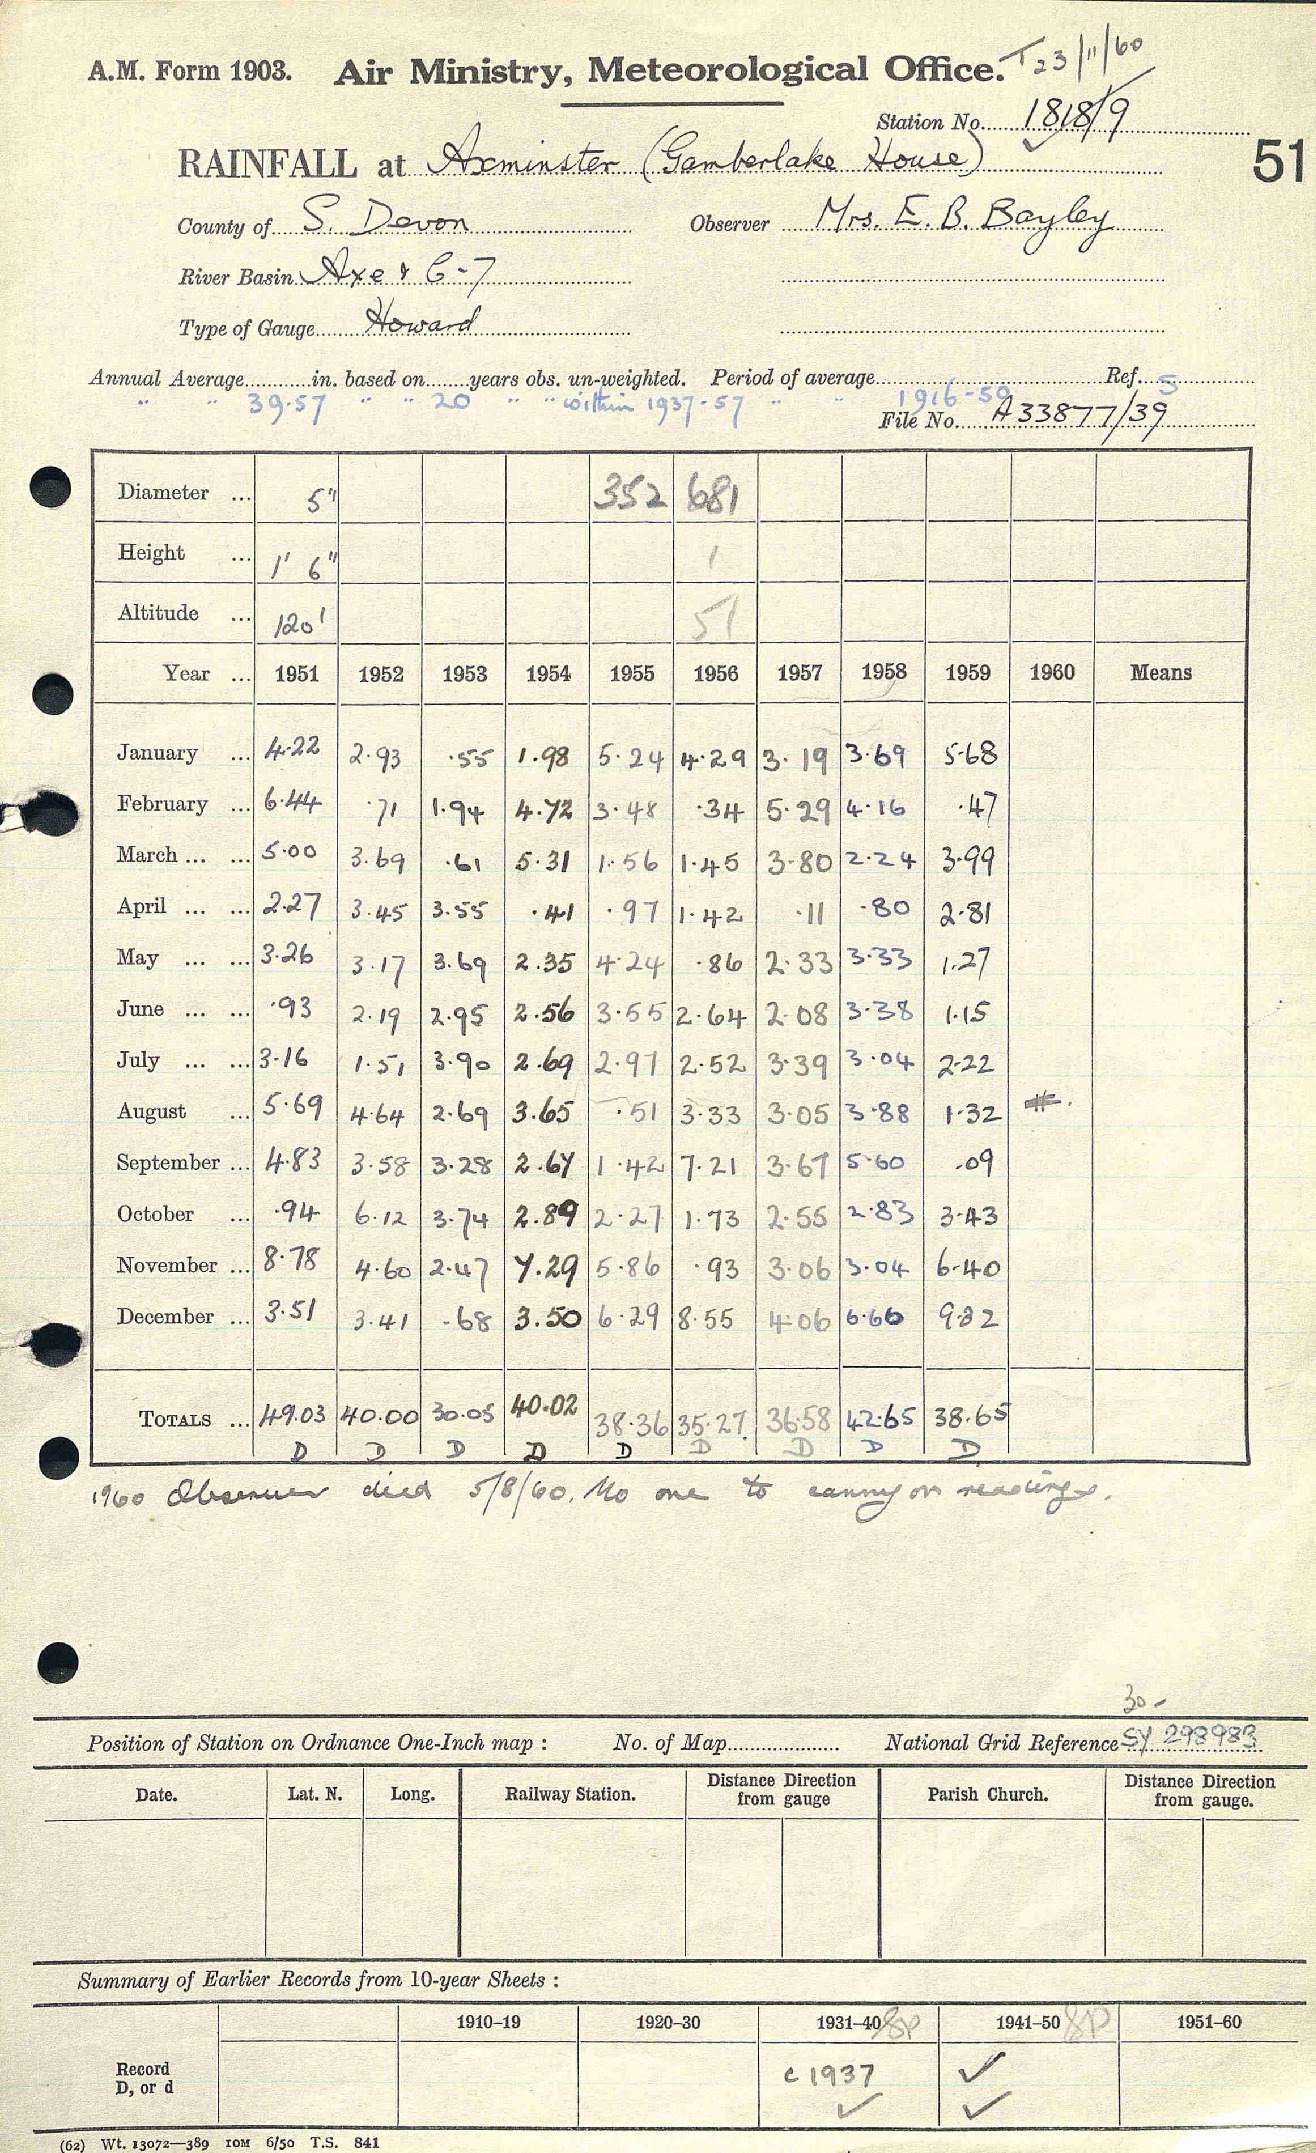 A.M. Form 1903. Air Ministry, Meteorological Office. T 23/11/60
Station No. 1818/9
RAINFALL at Axminster (Gamberlake House) 51
County of S. Devon Observer Mrs. E. B. Bayley
River Basin Axe & C-7
Type of Gauge Howard
Annual Average in. based on years obs. un-weighted. Period of average Ref. 5
" " 39.57 " " 20 " " within 1937-57 " " 1916-50
File No. A33877/39
Diameter ... 5" 352 681
Height ... 1' 6" 1
Altitude ... 120' 51
Year ... 1951 1952 1953 1954 1955 1956 1957 1958 1959 1960 Means
January ... 4.22 2.93 .55 1.98 5.24 4.29 3.19 3.69 5.68
February ... 6.44 .71 1.94 4.72 3.48 .34 5.29 4.16 .47
March ... ... 5.00 3.69 .61 5.31 1.56 1.45 3.80 2.24 3.99
April ... ... 2.27 3.45 3.55 .41 .97 1.42 .11 .80 2.81
May ... ... 3.26 3.17 3.69 2.35 4.24 .86 2.33 3.33 1.27
June ... ... .93 2.19 2.95 2.56 3.55 2.64 2.08 3.38 1.15
July ... ... 3.16 1.51 3.90 2.69 2.97 2.52 3.39 3.04 2.22
August ... 5.69 4.64 2.69 3.65 .51 3.33 3.05 3.88 1.32
September ... 4.83 3.58 3.28 2.67 1.42 7.21 3.67 5.60 .09
October ... .94 6.12 3.74 2.89 2.27 1.73 2.55 2.83 3.43
November ... 8.78 4.60 2.47 7.29 5.86 .93 3.06 3.04 6.40
December ... 3.51 3.41 .68 3.50 6.29 8.55 4.06 6.66 9.82
TOTALS ... 49.03 40.00 30.05 40.02 38.36 35.27 36.58 42.65 38.65
D D D D D D D D D
1960 Observer died 5/8/60. No one to carry on readings.
30-
Position of Station on Ordnance One-Inch map : No. of Map National Grid Reference SY 298983
Date. Lat. N. Long. Railway Station. Distance Direction from gauge Parish Church. Distance Direction from gauge.
Summary of Earlier Records from 10-year Sheets :
1910-19 1920-30 1931-40 1941-50 1951-60
Record c 1937 ✓
D, or d ✓ ✓
(62) Wt. 13072—389 10M 6/50 T.S. 841